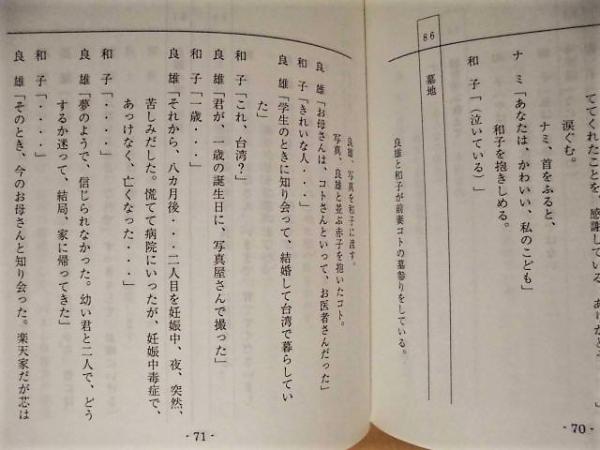 てくれたことを、感謝している。ありがとう」
涙ぐむ。
ナミ、首をふると、
ナ　ミ「あなたは、かわいい、私のこども」
和子を抱きしめる。
和　子「(泣いている)」
86　墓地
良雄と和子が前妻コトの墓参りをしている。
- 70 -
良雄、写真を和子に渡す。
写真、良雄と並ぶ赤子を抱いたコト。
良　雄「お母さんは、コトさんといって、お医者さんだった」
和　子「きれいな人・・・」
良　雄「学生のときに知り合って、結婚して台湾で暮らしてい
た」
和　子「これ、台湾？」
良　雄「君が、一歳の誕生日に、写真屋さんで撮った」
和　子「一歳・・・」
良　雄「それから、八カ月後・・・二人目を妊娠中、夜、突然、
苦しみだした。慌てて病院にいったが、妊娠中毒症で、
あっけなく、亡くなった・・・」
和　子「・・・・」
良　雄「夢のようで、信じられなかった。幼い君と二人で、どう
するか迷って、結局、家に帰ってきた」
和　子「・・・・」
良　雄「そのとき、今のお母さんと知り合った。楽天家だが芯は
- 71 -